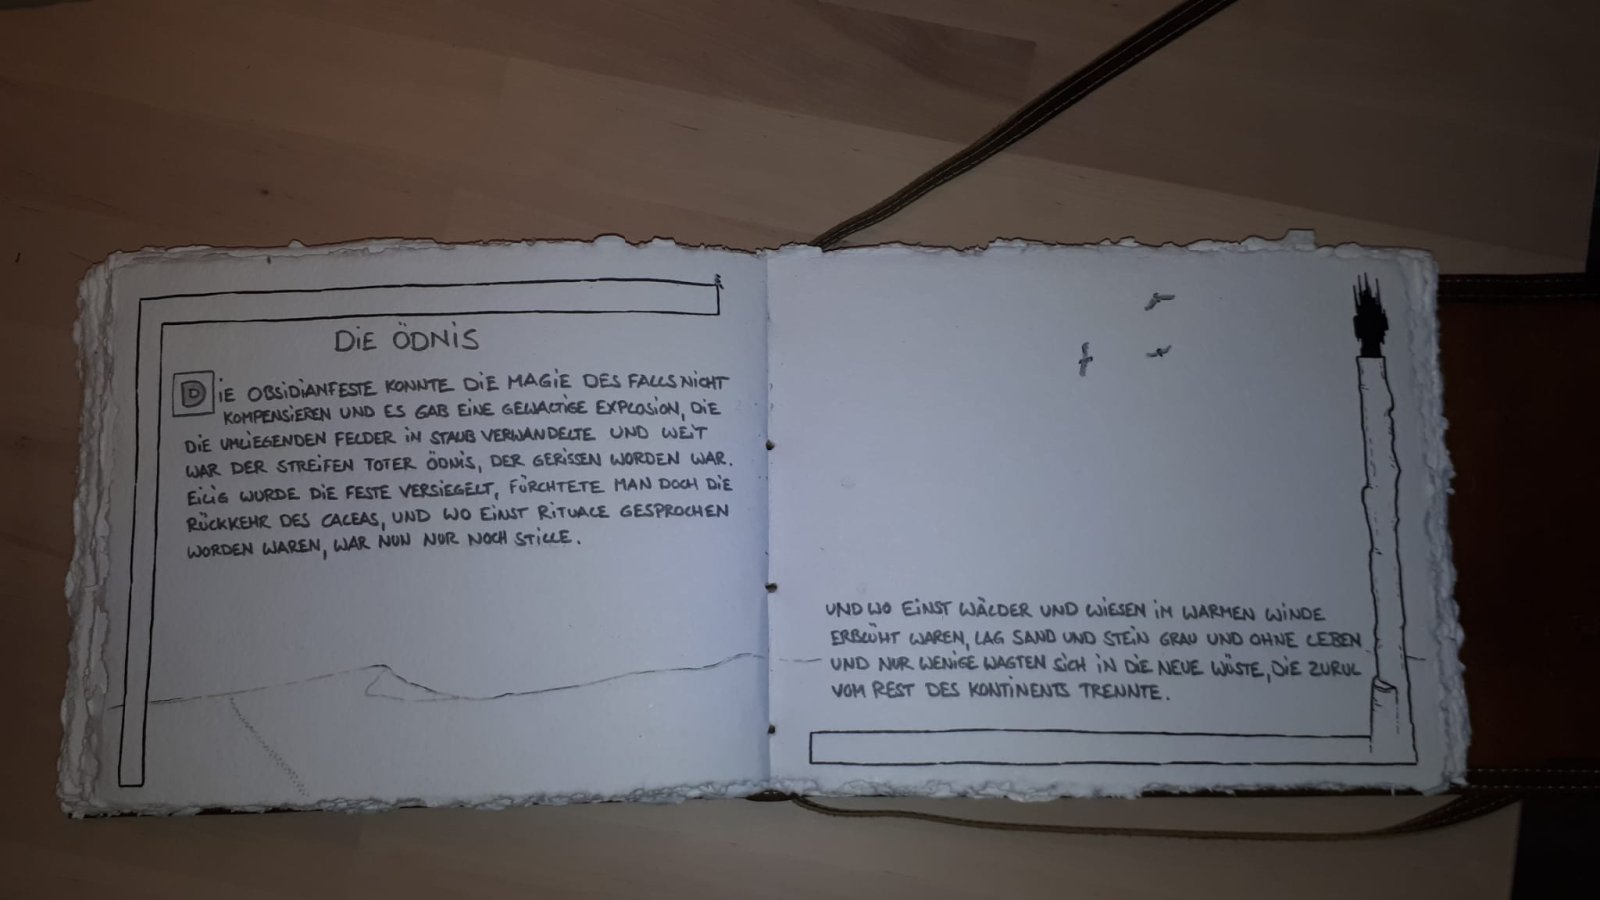 DiE ÖDNiS
DiE OBSiDiANFESTE KONNTE DiE MAGiE DES FALLS NiCHT
KOMPENSiEREN UND ES GAB EiNE GEWALTiGE EXPLOSiON, DiE
DiE UMLiEGENDEN FELDER iN STAUB VERWANDELTE UND WEiT
WAR DER STREiFEN TOTER ÖDNiS, DER GERiSSEN WORDEN WAR.
EiLiG WURDE DiE FESTE VERSiEGELT, FÜRCHTETE MAN DOCH DiE
RÜCKKEHR DES CALEAS, UND WO EiNST RiTUALE GESPROCHEN
WORDEN WAREN, WAR NUN NUR NOCH STiLLE.
UND WO EiNST WÄLDER UND WiESEN iM WARMEN WiNDE
ERBLÜHT WAREN, LAG SAND UND STEiN GRAU UND OHNE LEBEN
UND NUR WENiGE WAGTEN SiCH iN DiE NEUE WÜSTE, DiE ZURUL
VOM REST DES KONTiNENTS TRENNTE.